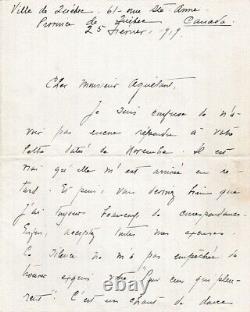 Ville de Québec. 61 - rue Ste Anne
Province de Québec Canada
25 Février, 1919
Cher Monsieur Aguétant.
Je suis confuse de n'a-
voir pas encore répondu à votre
lettre datée de Novembre. Il est
vrai que elle m'est arrivée en re-
tard. Et puis, vous devinez bien que
j'ai toujours beaucoup de correspondance.
Enfin, acceptez toutes mes excuses.
Ce silence ne m'a pas empêchée de
trouver exquis votre "Que ceux qui pleu-
rent"! C'est un chant de douce
© ebay